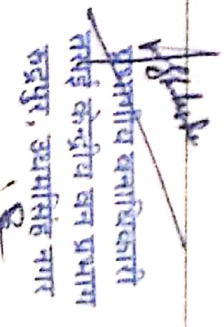 प्रभागीय वनाधिकारी
तराई केन्द्रीय वन प्रभाग
रुद्रपुर, उधमसिंह नगर